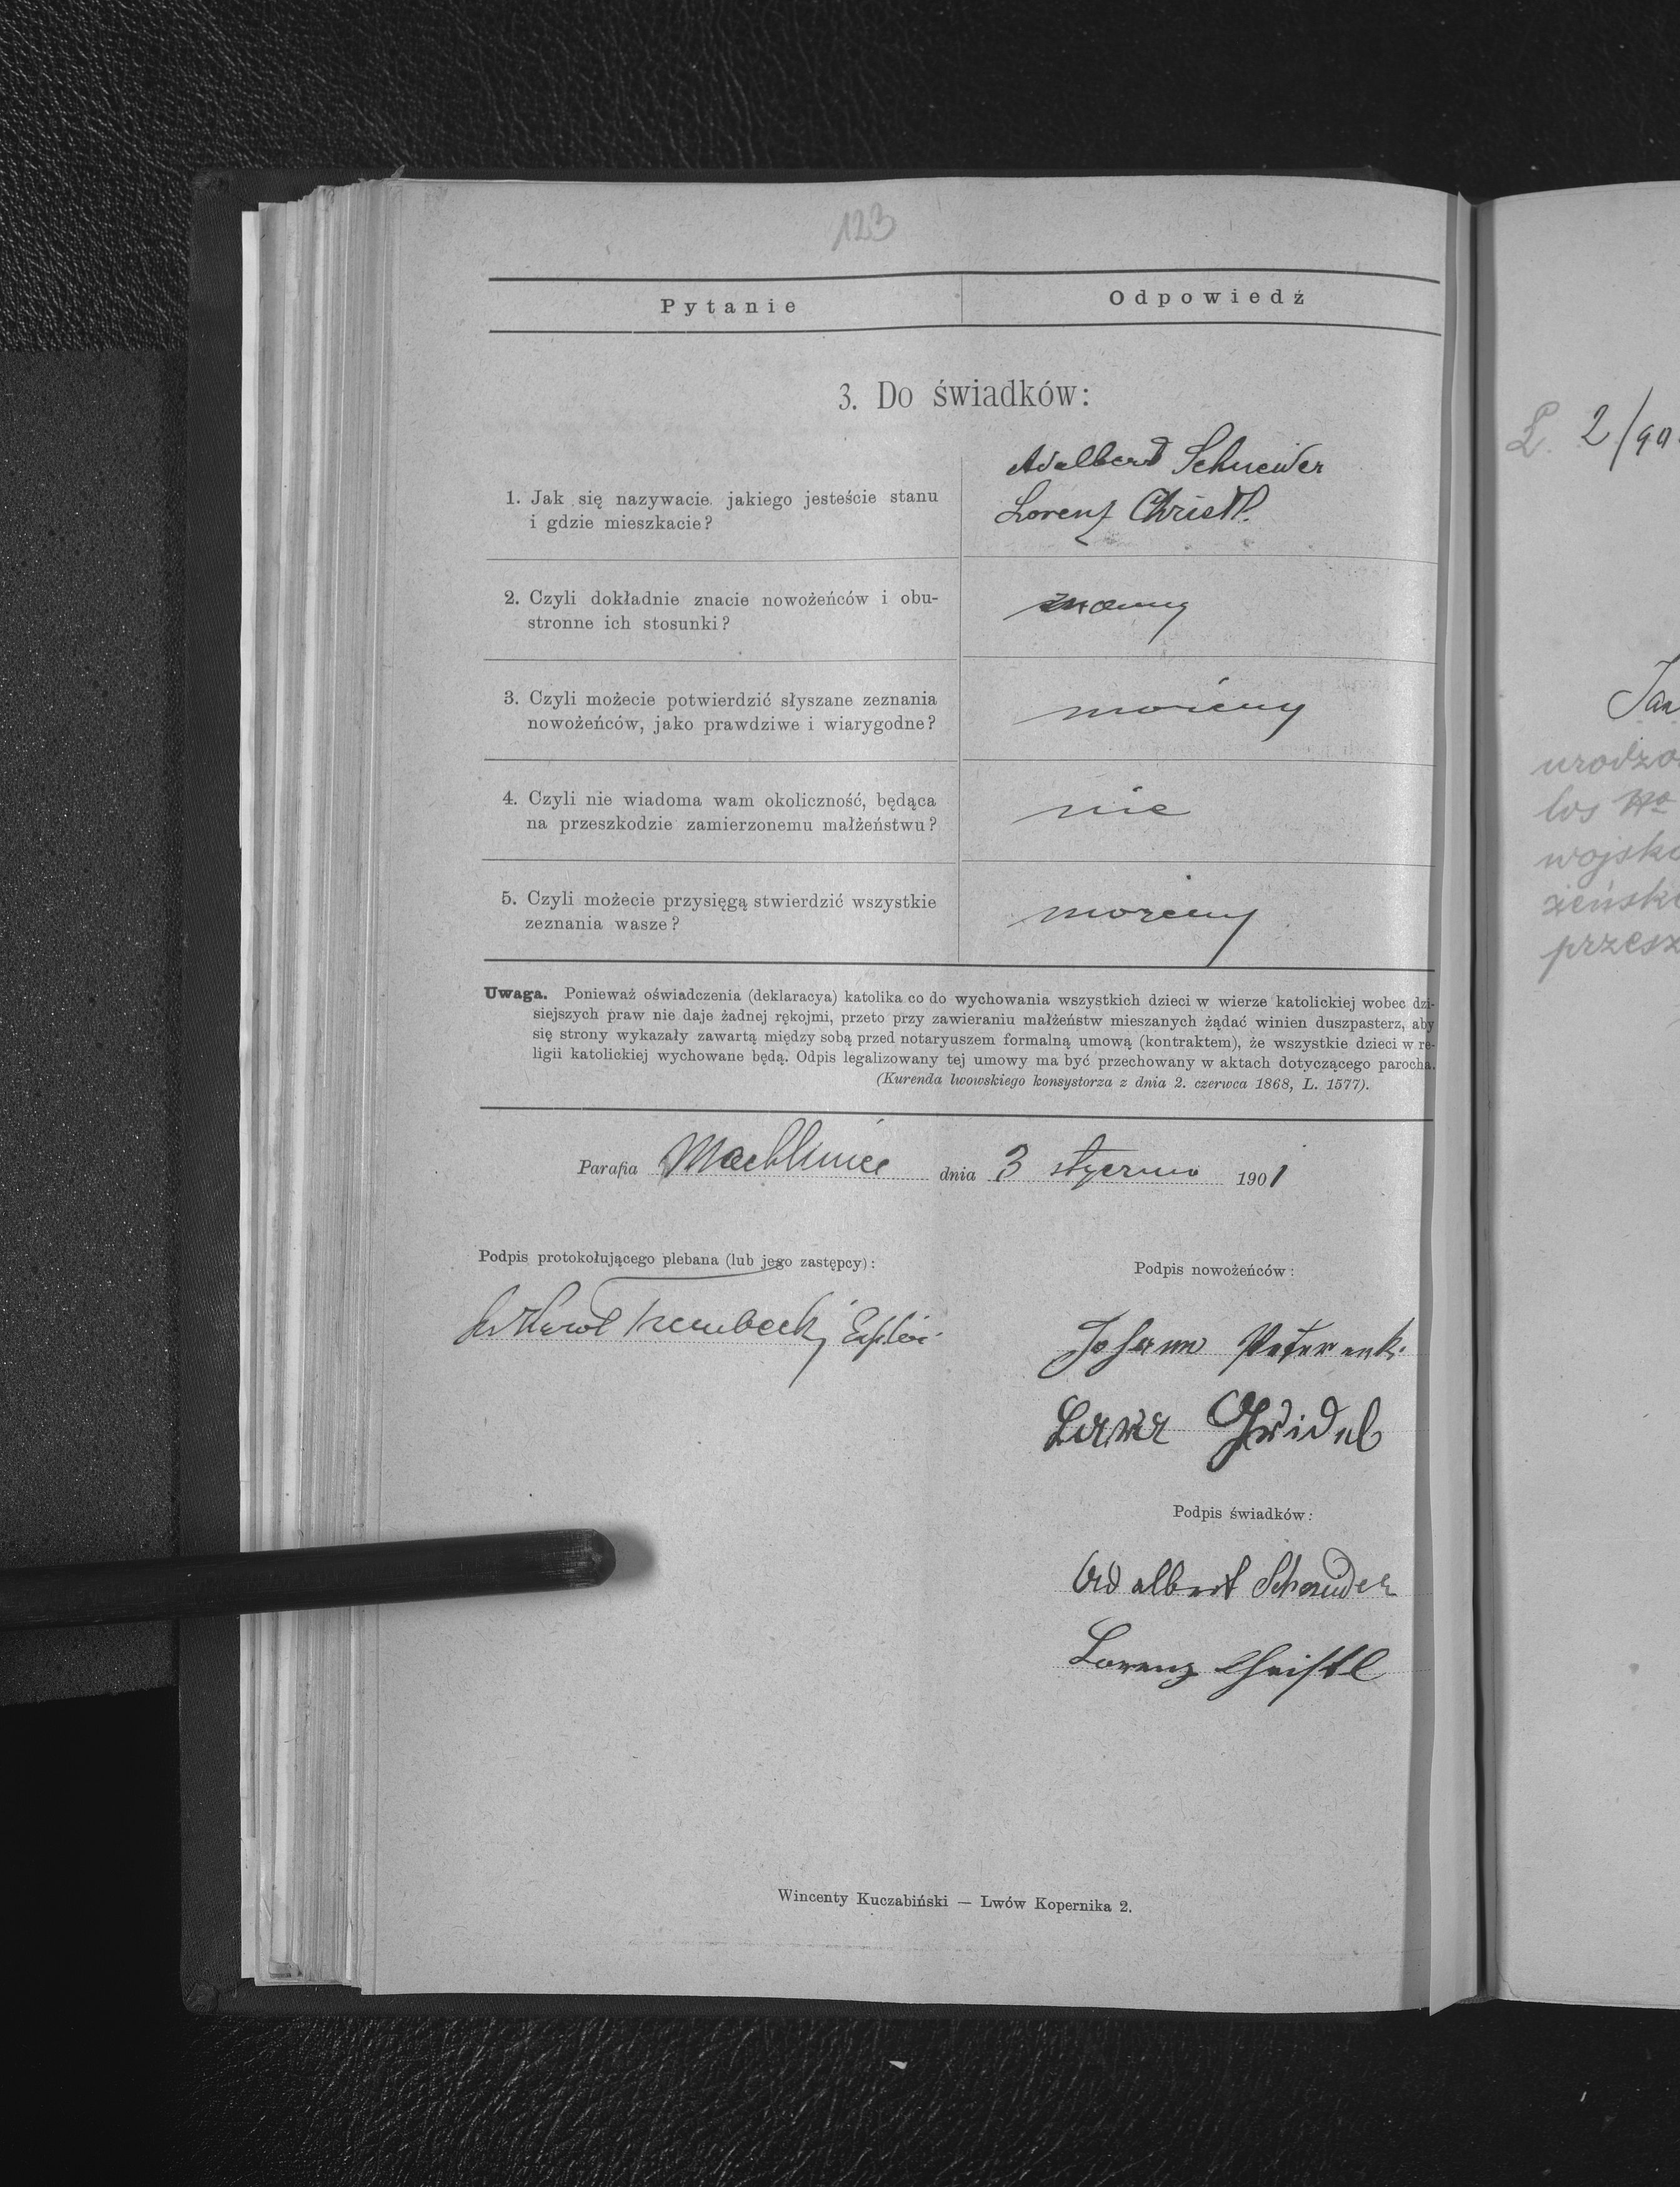 123
Pytanie Odpowiedź
3. Do świadków:
1. Jak się nazywacie, jakiego jesteście stanu
i gdzie mieszkacie?
Adalbert Schneider
Lorenz Christl.
2. Czyli dokładnie znacie nowożeńców i obu-
stronne ich stosunki?
znamy
3. Czyli możecie potwierdzić słyszane zeznania
nowożeńców, jako prawdziwe i wiarygodne?
możemy
4. Czyli nie wiadoma wam okoliczność, będąca
na przeszkodzie zamierzonemu małżeństwu?
nie
5. Czyli możecie przysięgą stwierdzić wszystkie
zeznania wasze?
możemy
Uwaga. Ponieważ oświadczenia (deklaracya) katolika co do wychowania wszystkich dzieci w wierze katolickiej wobec dzi-
siejszych praw nie daje żadnej rękojmi, przeto przy zawieraniu małżeństw mieszanych żądać winien duszpasterz, aby
się strony wykazały zawartą między sobą przed notaryuszem formalną umową (kontraktem), że wszystkie dzieci w re-
ligii katolickiej wychowane będą. Odpis legalizowany tej umowy ma być przechowany w aktach dotyczącego parocha.
(Kurenda lwowskiego konsystorza z dnia 2. czerwca 1868, L. 1577).
Parafia Machliniec dnia 3 stycznia 1901
Podpis protokołującego plebana (lub jego zastępcy):
Podpis nowożeńców:
Johann
Podpis świadków:
Adalbert Schneider
Lorenz Christl
Wincenty Kuczabiński — Lwów Kopernika 2.
L. 2/90
Jan
urodzo
los
wojsko
żeńsk
przesz